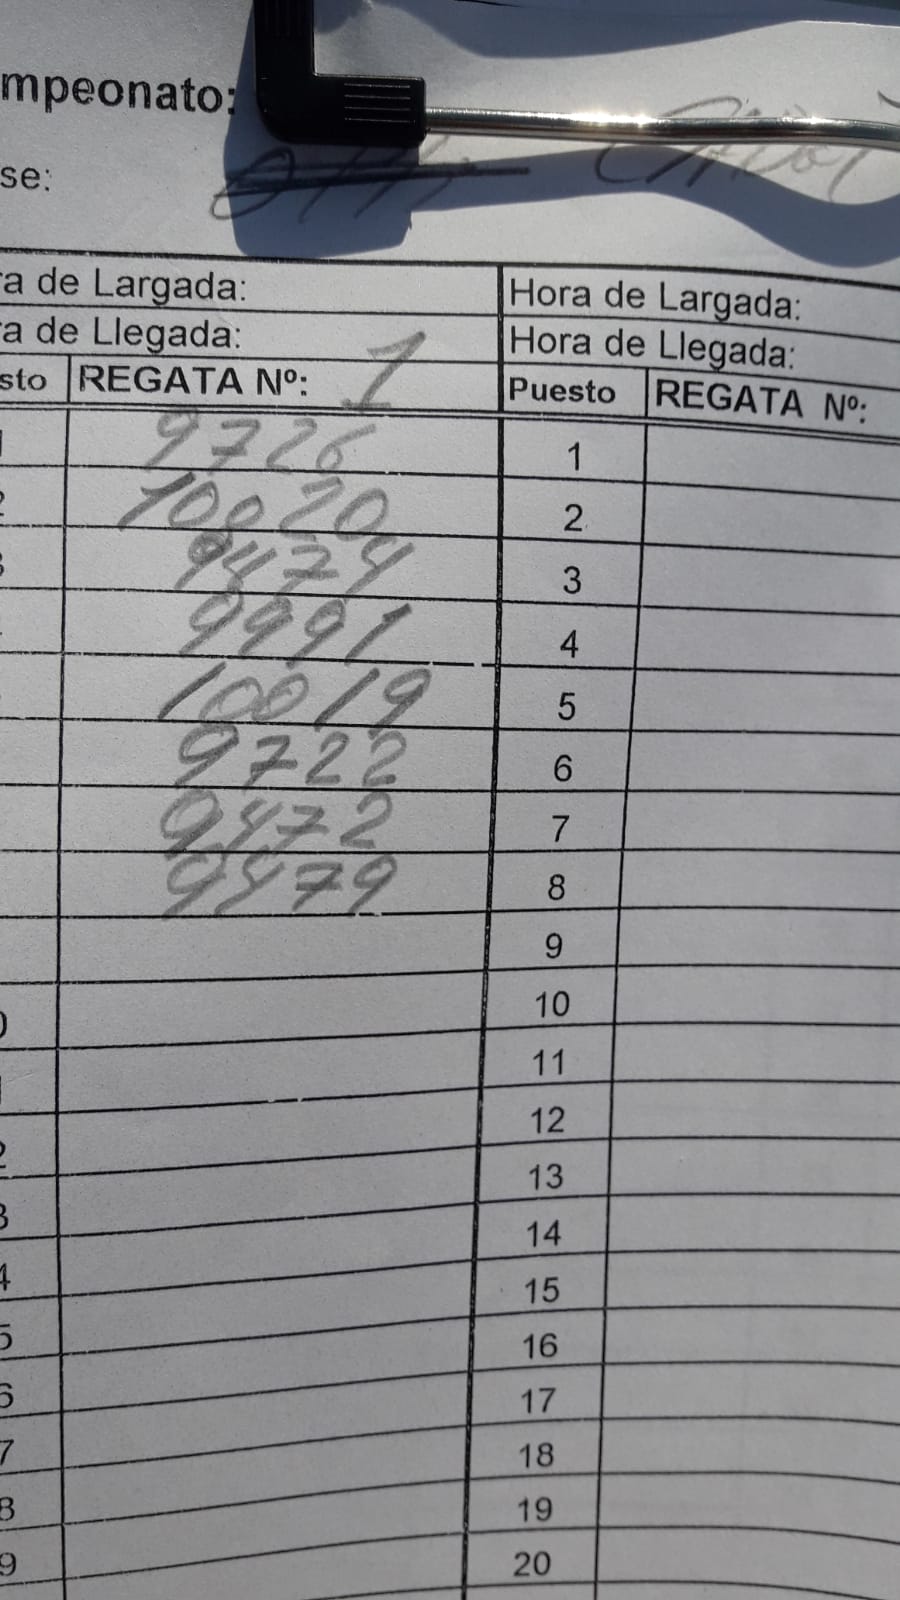 mpeonato:
se:
ra de Largada: Hora de Largada:
ra de Llegada: Hora de Llegada:
sto REGATA Nº: 1 Puesto REGATA Nº:
1 9726 1
2 10020 2
3 9474 3
9991 4
10019 5
9722 6
9472 7
9479 8
9
0 10
1 11
2 12
3 13
4 14
5 15
6 16
7 17
8 18
9 19
20